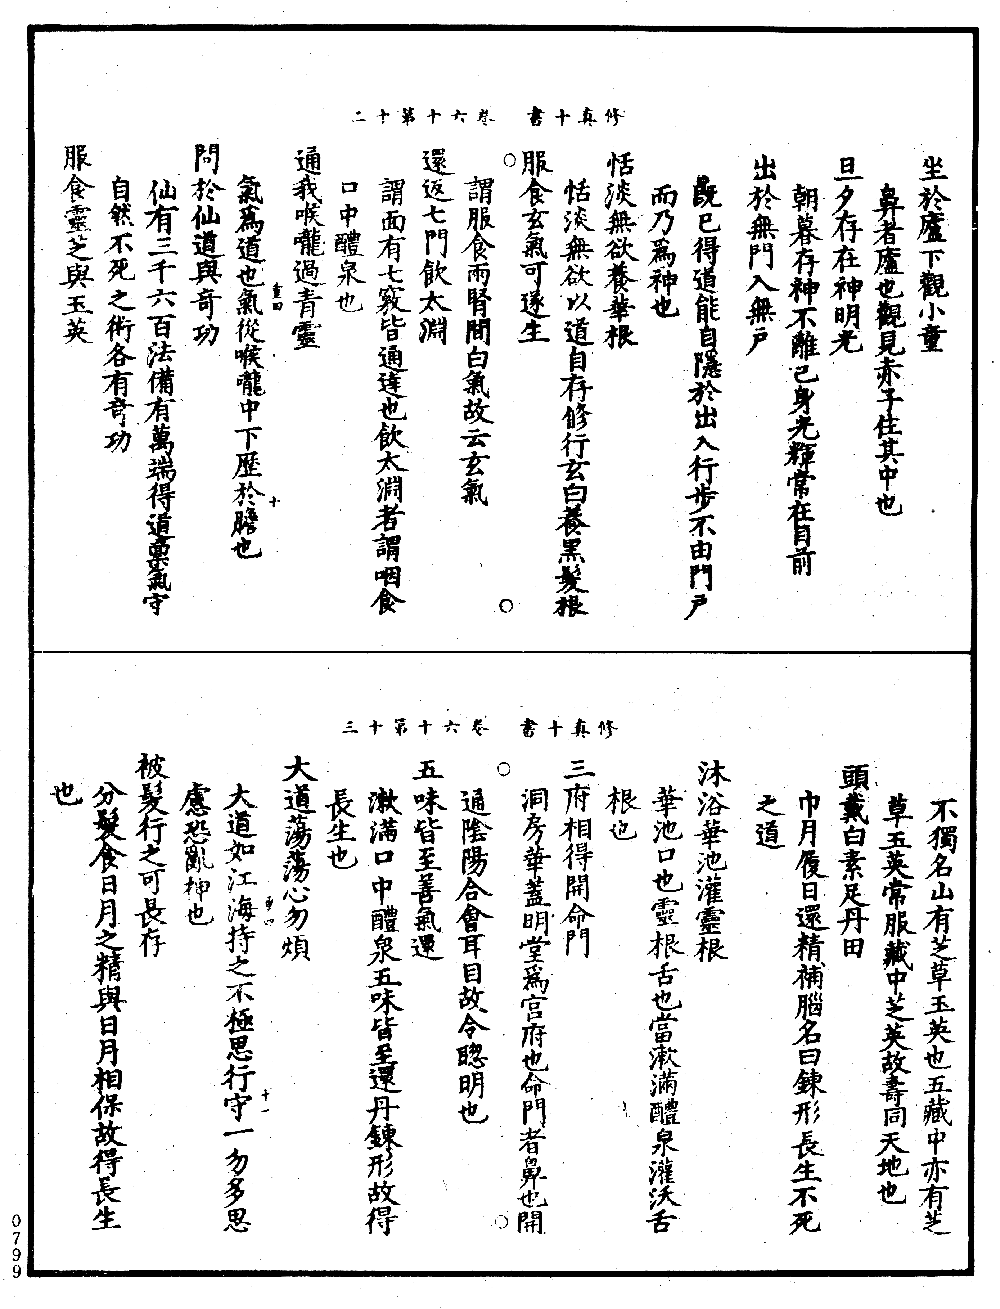 修真十書　卷六十第十二
坐於廬下觀小童
鼻者廬也觀見赤子住其中也
旦夕存在神明光
朝暮存神不離己身光輝常在目前
出於無門入無戶
旣已得道能自隱於出入行步不由門戶
而乃爲神也
恬淡無欲養華根
恬淡無欲以道自存修行玄白養黑髮根
服食玄氣可遂生
謂服食兩腎間白氣故云玄氣
還返七門飮太淵
謂面有七竅皆通達也飮太淵者謂咽食
口中醴泉也
通我喉嚨過青靈
氣爲道也氣從喉嚨中下歷於膽也
重四
十
問於仙道與奇功
仙有三千六百法備有萬端得道稟氣守
自然不死之術各有奇功
服食靈芝與玉英
修真十書　卷六十第十三
不獨名山有芝草玉英也五藏中亦有芝
草玉英常服藏中芝英故壽同天地也
頭戴白素足丹田
巾月履日還精補腦名曰鍊形長生不死
之道
沐浴華池灌靈根
華池口也靈根舌也當漱滿醴泉灌沃舌
根也
三府相得開命門
洞房華蓋明堂爲宮府也命門者鼻也開
通陰陽合會耳目故令聦明也
五味皆至善氣還
漱滿口中醴泉五味皆至還丹鍊形故得
長生也
大道蕩蕩心勿煩
大道如江海持之不極思行守一勿多思
重四
十一
慮恐亂神也
被髮行之可長存
分髮食日月之精與日月相保故得長生
也
0799